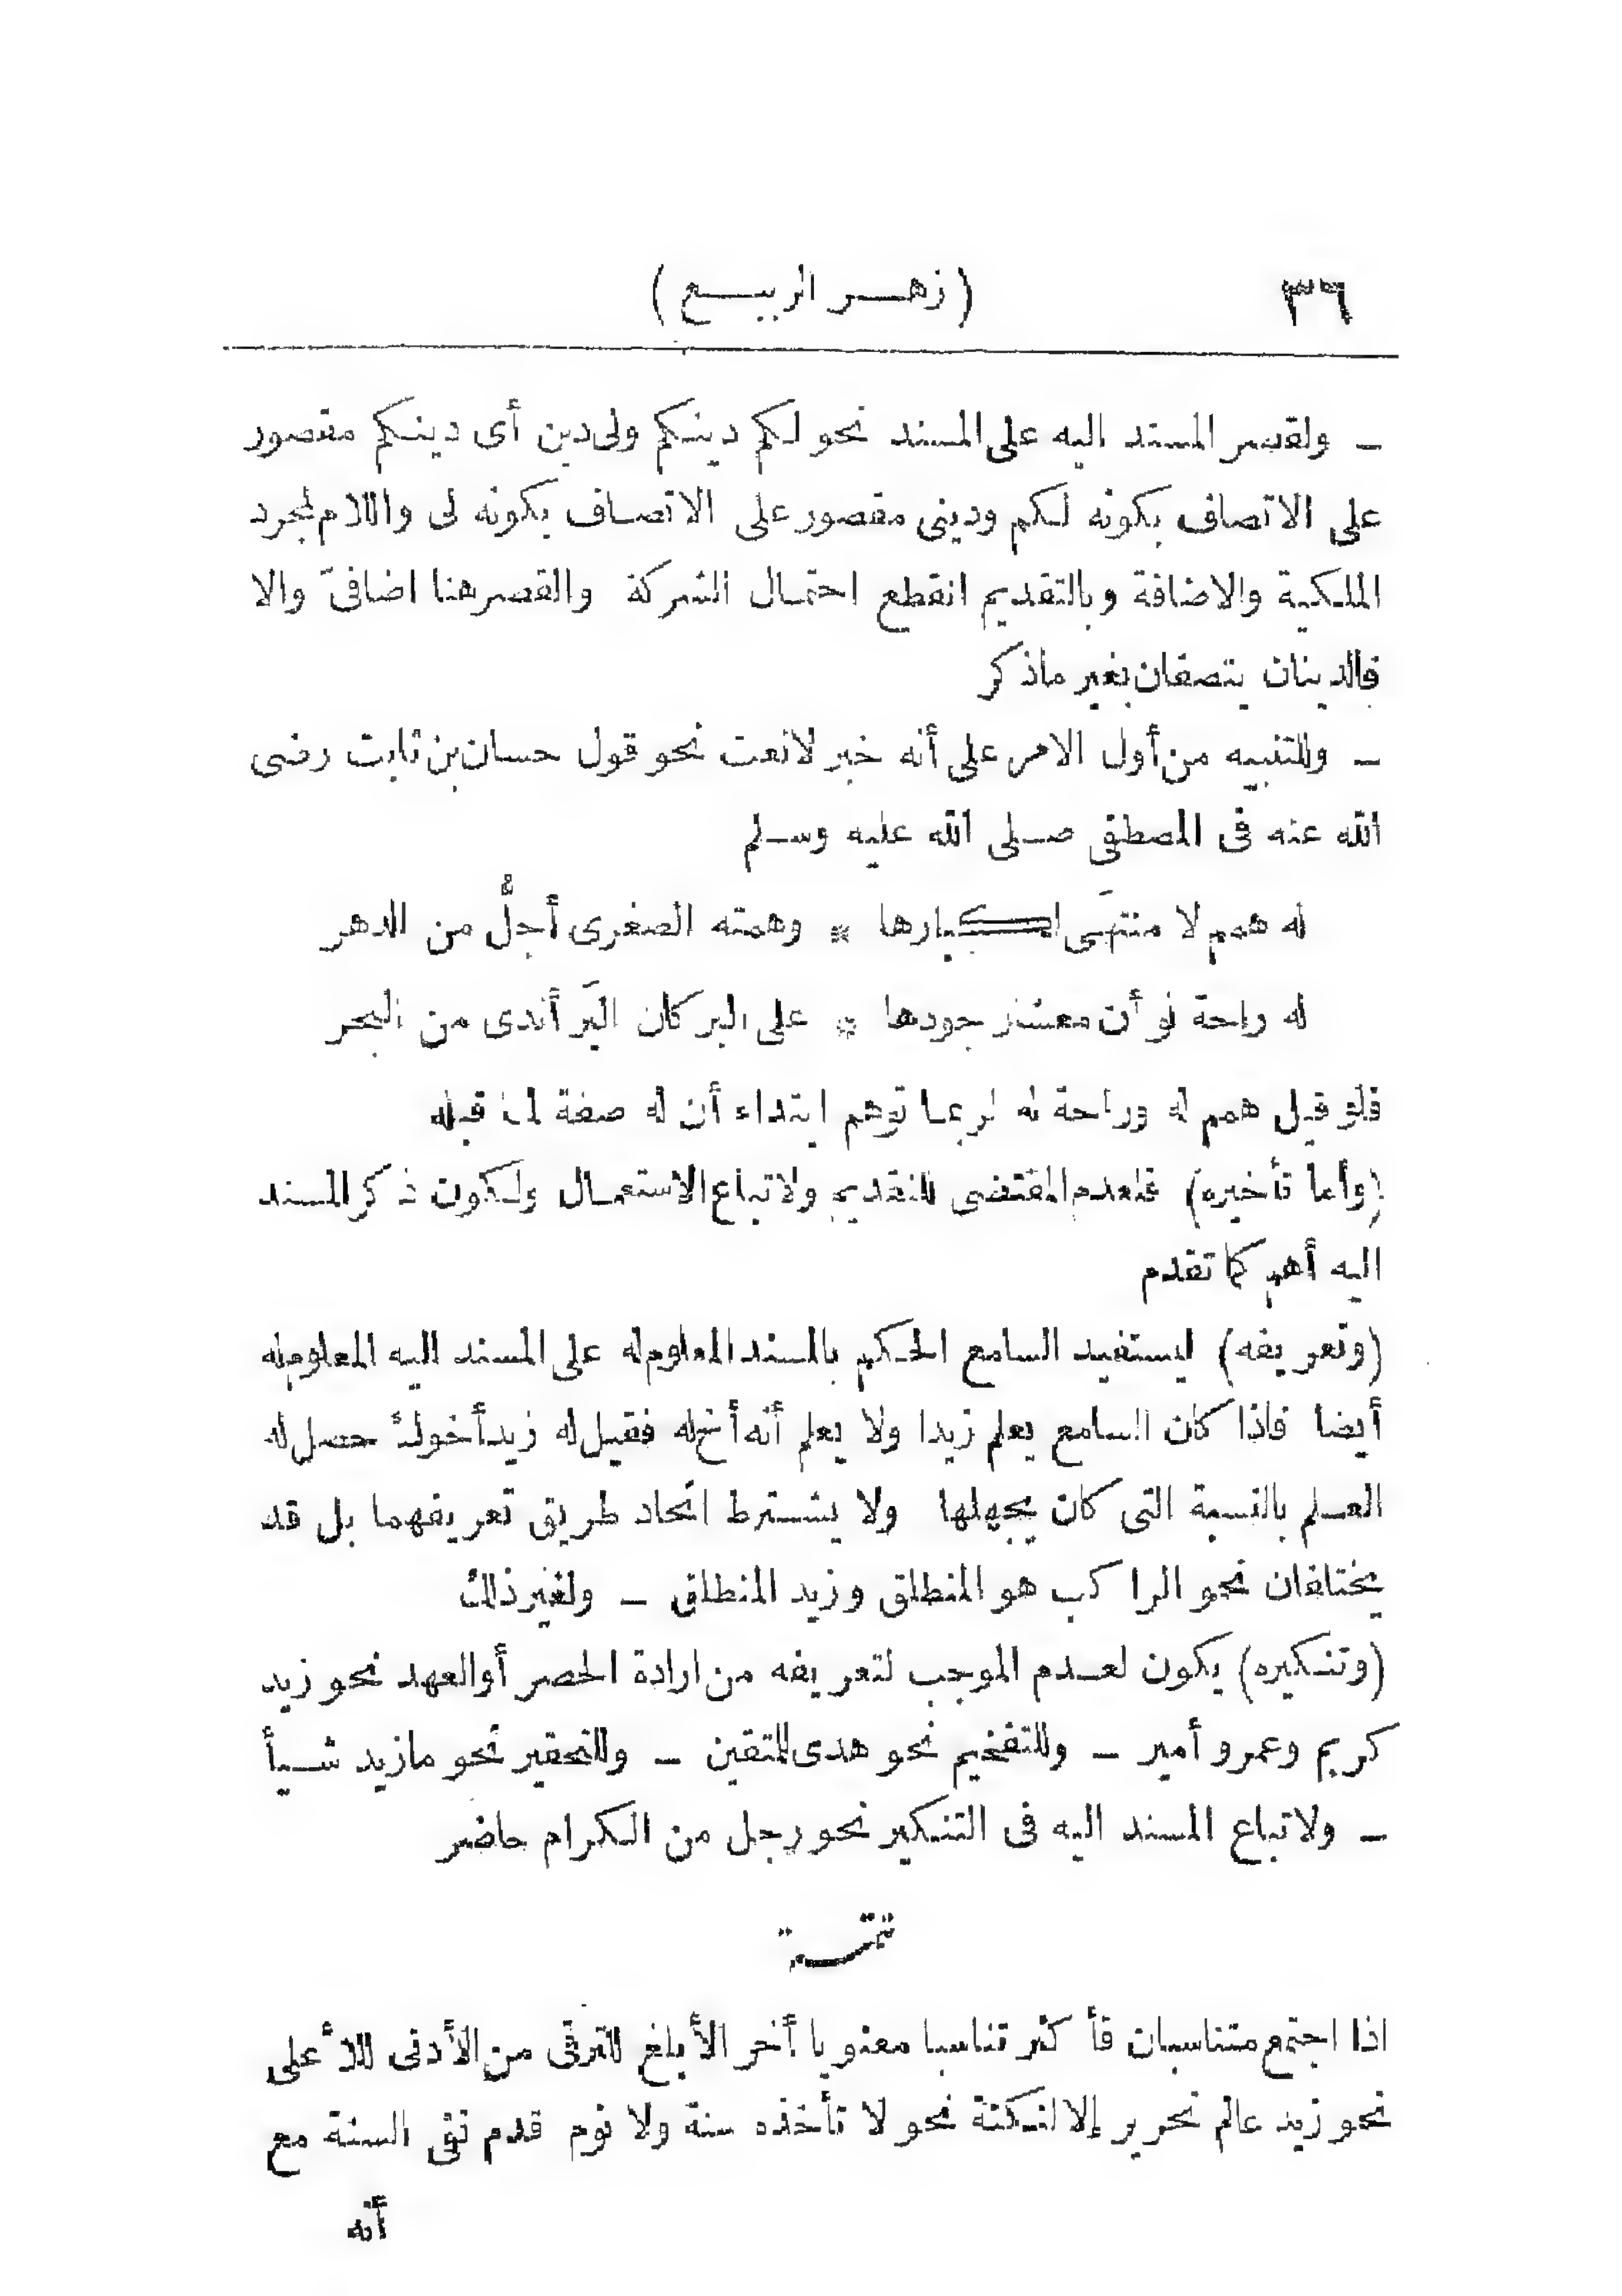 ٣٦ (زهر الربيع)
ـ ولقصر المسند اليه على المسند نحو لكم دينكم ولى دين أى دينكم مقصور
على الاتصاف بكونه لكم ودينى مقصور على الاتصاف بكونه لى واللام لمجرد
الملكية والاضافة وبالتقديم انقطع احتمال الشركة والقصر هنا اضافىّ والا
فالدينان يتصفان بغير ماذكر
ـ وللتنبيه من أول الامر على أنه خبر لانعت نحو قول حسان بن ثابت رضى
الله عنه فى المصطفى صلى الله عليه وسلم
له همم لا منتهَى لكبارها * وهمته الصغرى أجلُّ من الدهر
له راحة لو أن معشار جودها * على البر كان البَر أندى من البحر
فلو قيل همم له وراحة له لربما توهم ابتداء أن له صفة لما قبله
(وأما تأخيره) فلعدم المقتضى للتقديم ولاتباع الاستعمال ولكون ذكر المسند
اليه أهم كما تقدم
(وتعريفه) ليستفيد السامع الحكم بالمسند المعلوم له على المسند اليه المعلوم له
أيضا فاذا كان السامع يعلم زيدا ولا يعلم أنه أخ له فقيل له زيد أخوك حصل له
العلم بالنسبة التى كان يجهلها ولا يشترط اتحاد طريق تعريفهما بل قد
يختلفان نحو الراكب هو المنطلق وزيد المنطلق ـ ولغير ذلك
(وتنكيره) يكون لعدم الموجب لتعريفه من ارادة الحصر أو العهد نحو زيد
كريم وعمرو أمير ـ وللتفخيم نحو هدى للمتقين ـ وللتحقير نحو مازيد شيأ
ـ ولاتباع المسند اليه فى التنكير نحو رجل من الكرام حاضر
تتمة
اذا اجتمع متناسبان فأكثر تناسبا معنويا أخر الأبلغ للترقى من الأدنى للأعلى
نحو زيد عالم نحرير إلا لنكتة نحو لا تأخذه سنة ولا نوم قدم نفى السنة مع
أنه